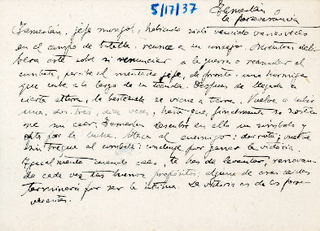 5/17/37
Tamerlán o
la perseverancia
Tamerlán, jefe mongol, habiendo sido vencido varias veces
en el campo de batalla, reunió a su consejo. Mientras deli-
bera este sobre si renunciar a la guerra o reanudar el
combate, percibe el mentado jefe, de pronto, una hormiga
que sube a lo largo de su tienda. Después de llegada a
cierta altura, la bestezuela se viene a tierra. Vuelve a subir
una, dos, tres, diez veces, hasta que, finalmente, se sostie-
ne sin caer. Tamerlán descubre en ello un símbolo y
opta por la lucha. Ataca al enemigo: derrota; vuelve
sin tregua al combate: concluye por ganar la victoria.
Igual siento cuando caes, te has de levantar, renovan-
do cada vez tus buenos propósitos; alguna de esas caídas
terminará por ser la última. La victoria es de los perse-
verantes.